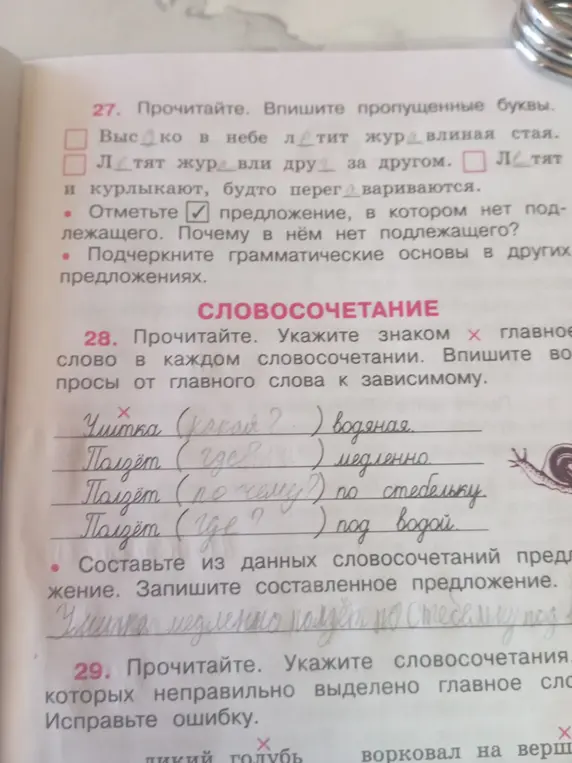 27. Прочитайте. Впишите пропущенные буквы.
Высоко в небе летит журавлиная стая.
Летят журавли друг за другом. Летят
и курлыкают, будто переговариваются.
• Отметьте ✓ предложение, в котором нет под-
лежащего. Почему в нём нет подлежащего?
• Подчеркните грамматические основы в других
предложениях.
СЛОВОСОЧЕТАНИЕ
28. Прочитайте. Укажите знаком × главное
слово в каждом словосочетании. Впишите во
просы от главного слова к зависимому.
×
Улитка (какая?) водяная.
Ползёт (где?) медленно.
Ползёт (по чему?) по стебельку.
Ползёт (где?) под водой.
• Составьте из данных словосочетаний пред
жение. Запишите составленное предложение.
Улитка медленно ползёт по стебельку под
29. Прочитайте. Укажите словосочетания
которых неправильно выделено главное сло
Исправьте ошибку.
× ×
дикий голубь ворковал на верш